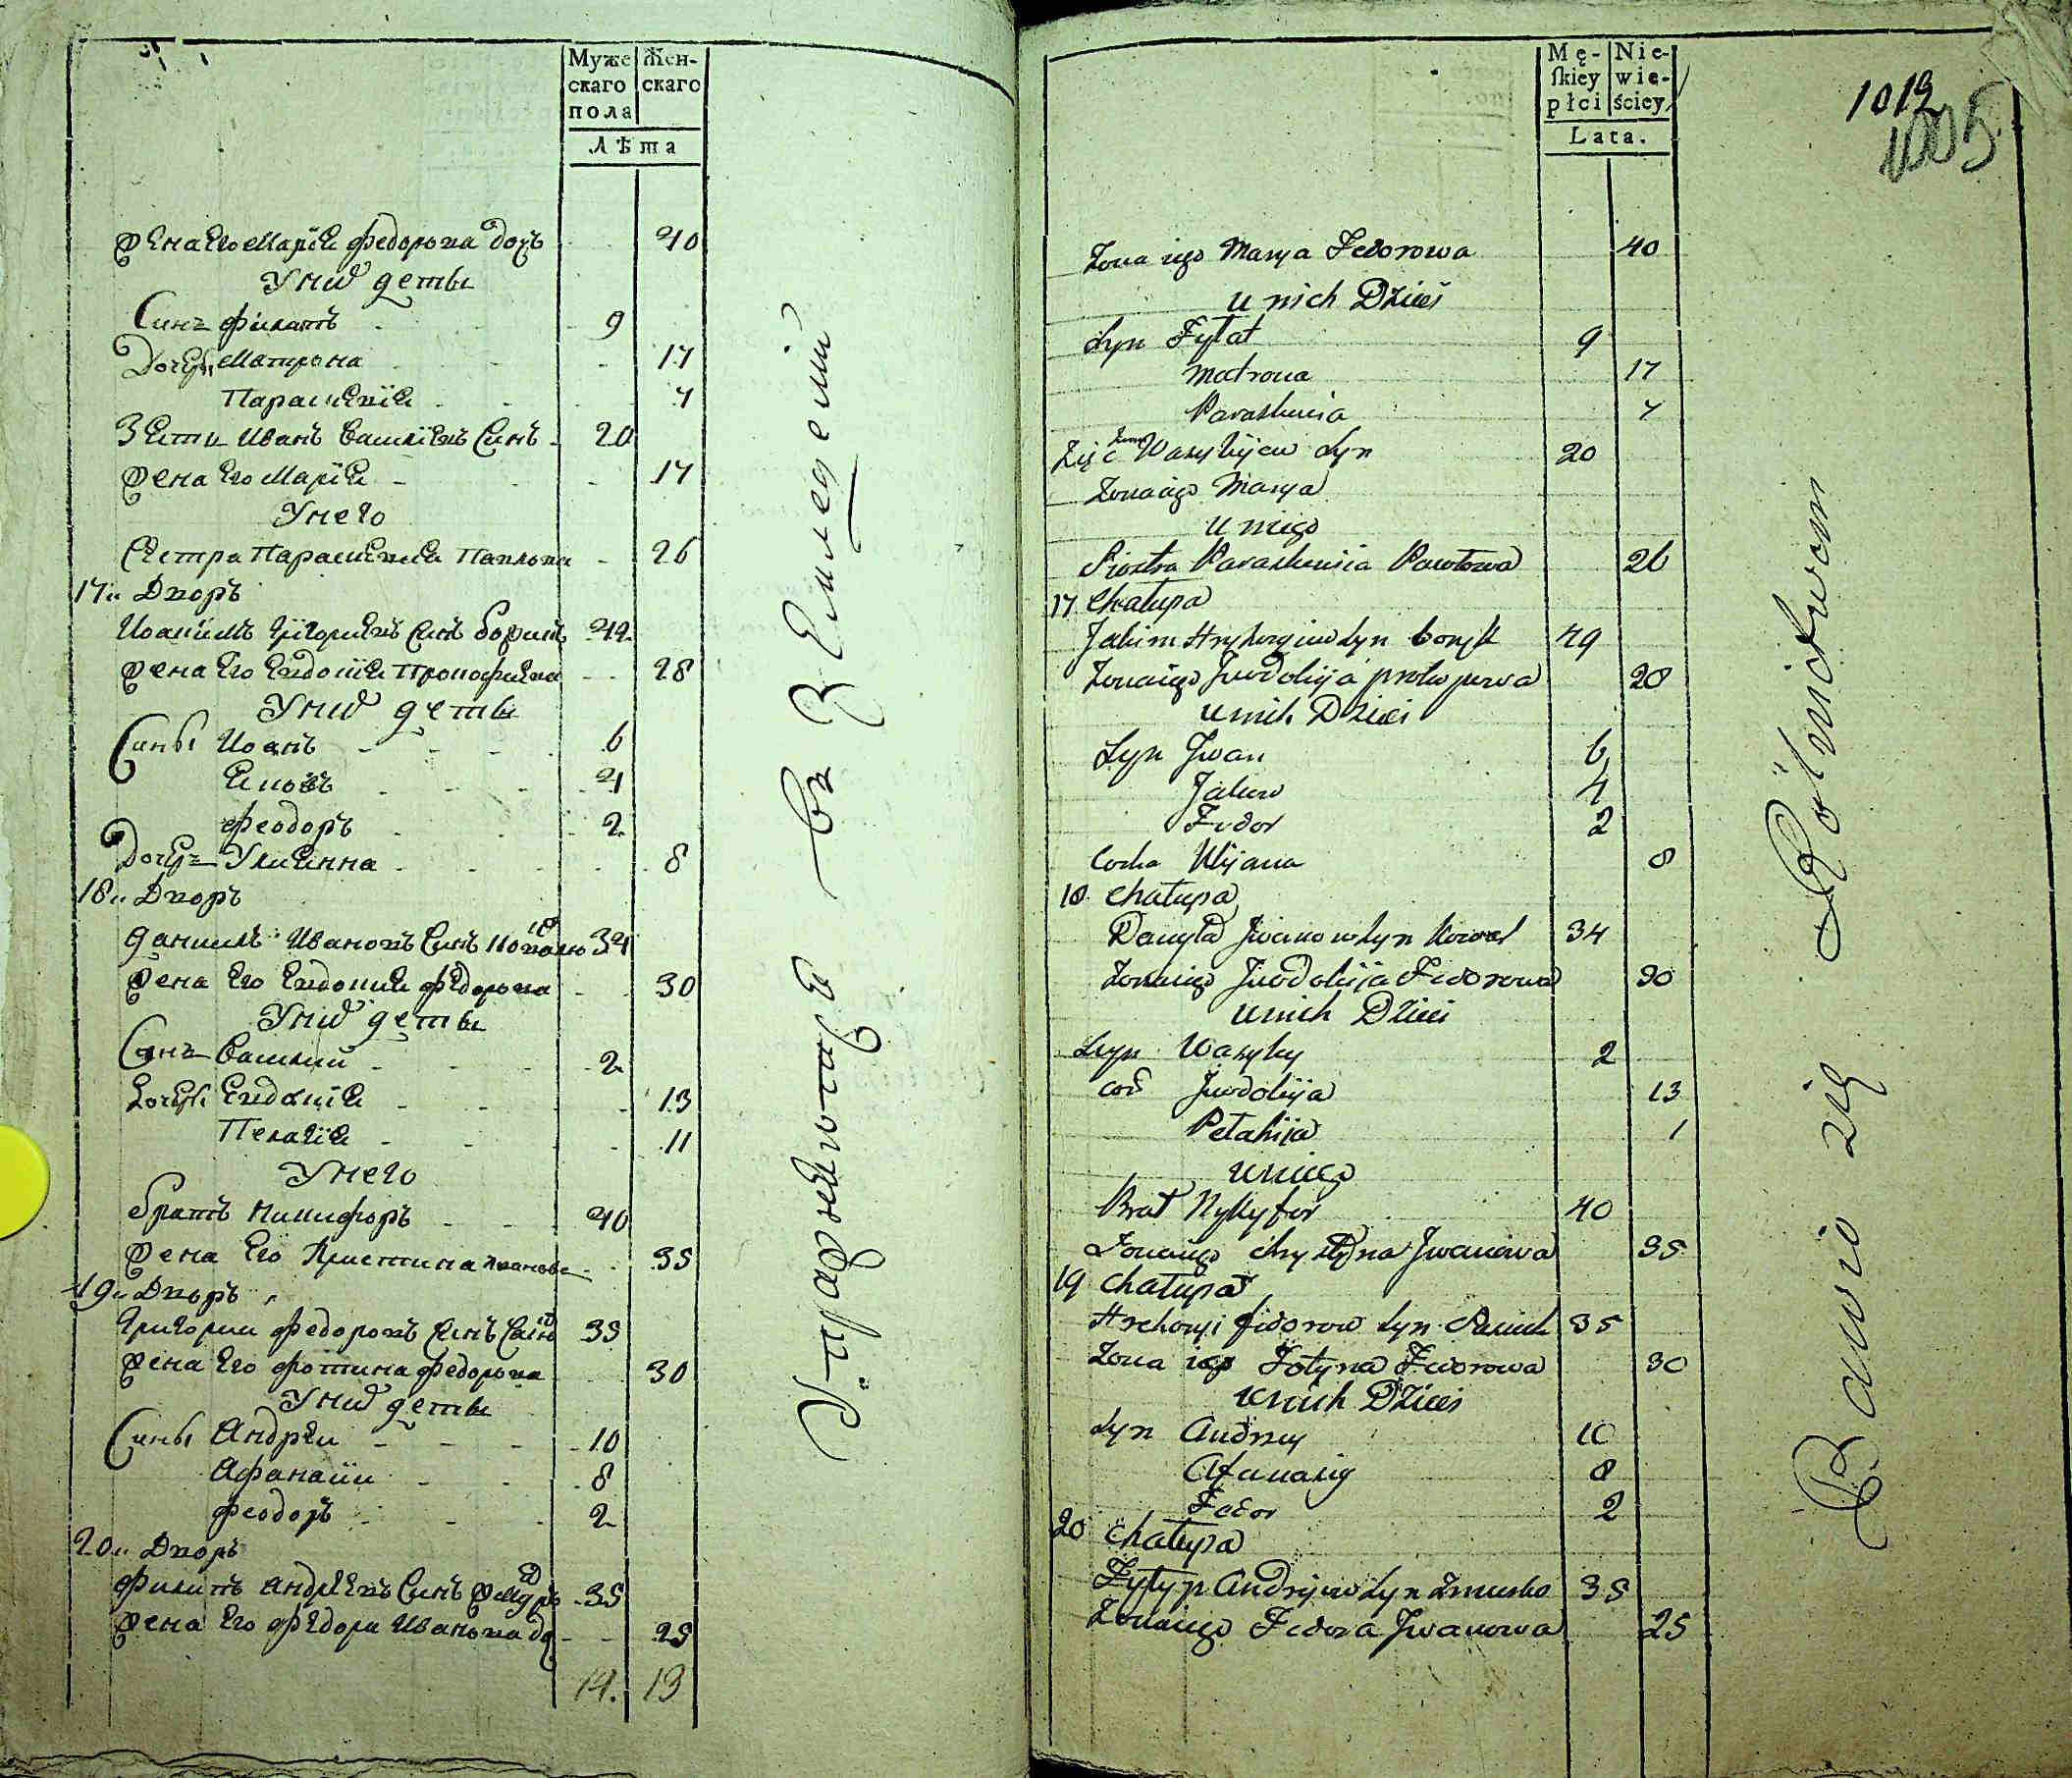 Муже скаго пола
Жен- скаго
Лѣта
Жена Его Марїя Федорова дочь 40
У них дети
Синъ Филатъ 9
Дочери Матрона 17
Параскевїя 4
Зять Иванъ Василїевъ Синъ 20
Жена Его Марїя 17
У него
Сестра Параскевия Павлова 26
17й Дворъ
Иоакимъ Григориевъ Синъ 49
Жена Его Евдокїя Прокофиева 28
У них дети
Сины Иоанъ 6
Яковъ 4
Феодоръ 2
Дочерь Улиянна 8
18й Дворъ
Даниилъ Ивановъ Синъ Коваль 34
Жена Его Евдокия Федорова 30
У них дети
Синъ Василий 2
Дочери Евдокїя 13
Пелагїя 11
У него
Братъ Никифоръ 40
Жена Его Христина Иванова 35
19й Дворъ
Григории Федоровъ Синъ 35
Жена Его Фотина Федорова 30
У них дети
Сины Андреи 10
Афанасии 8
Феодоръ 2
20й Дворъ
Филипъ Андреевъ Синъ 35
Жена Его Федора Иванова до 25
14. 13
Упражняются въ Земледелїи
Mę- skiey płci
Nie- wie- ściey
Lata.
1012
1005
Zona iego Marya Fedorowa 40
U nich Dzieci
Syn Fyłat 9
Matrona 17
Paraskewia 4
Zięć Iwan Wasylijew Syn 20
Zona iego Marya
U niego
Siostra Paraskewia Pawłowa 26
17 Chałupa
Jakim Hryhoryiew Syn 49
Zona iego Jewdokija Prokopowa 28
U nich Dzieci
Syn Jwan 6
Jakow 4
Fedor 2
Corka Ulijana 8
18 Chałupa
Danyło Jwanow Syn Kowal 34
Zona iego Jewdokija Fedorowa 30
U nich Dzieci
Syn Wasyly 2
Cor Jewdokija 13
Pełahija 1
U niego
Brat Nykyfor 40
Zona iego Chrystyna Jwanowa 35
19 Chałupa
Hrehory Fedorow Syn 35
Zona iego Fotyna Fedorowa 30
U nich Dzieci
Syn Andrzey 10
Afanasiy 8
Fedor 2
20 Chałupa
Fyłyp Andrijew Syn 35
Zona iego Fedora Jwanowa 25
Bawio się Rolnictwem